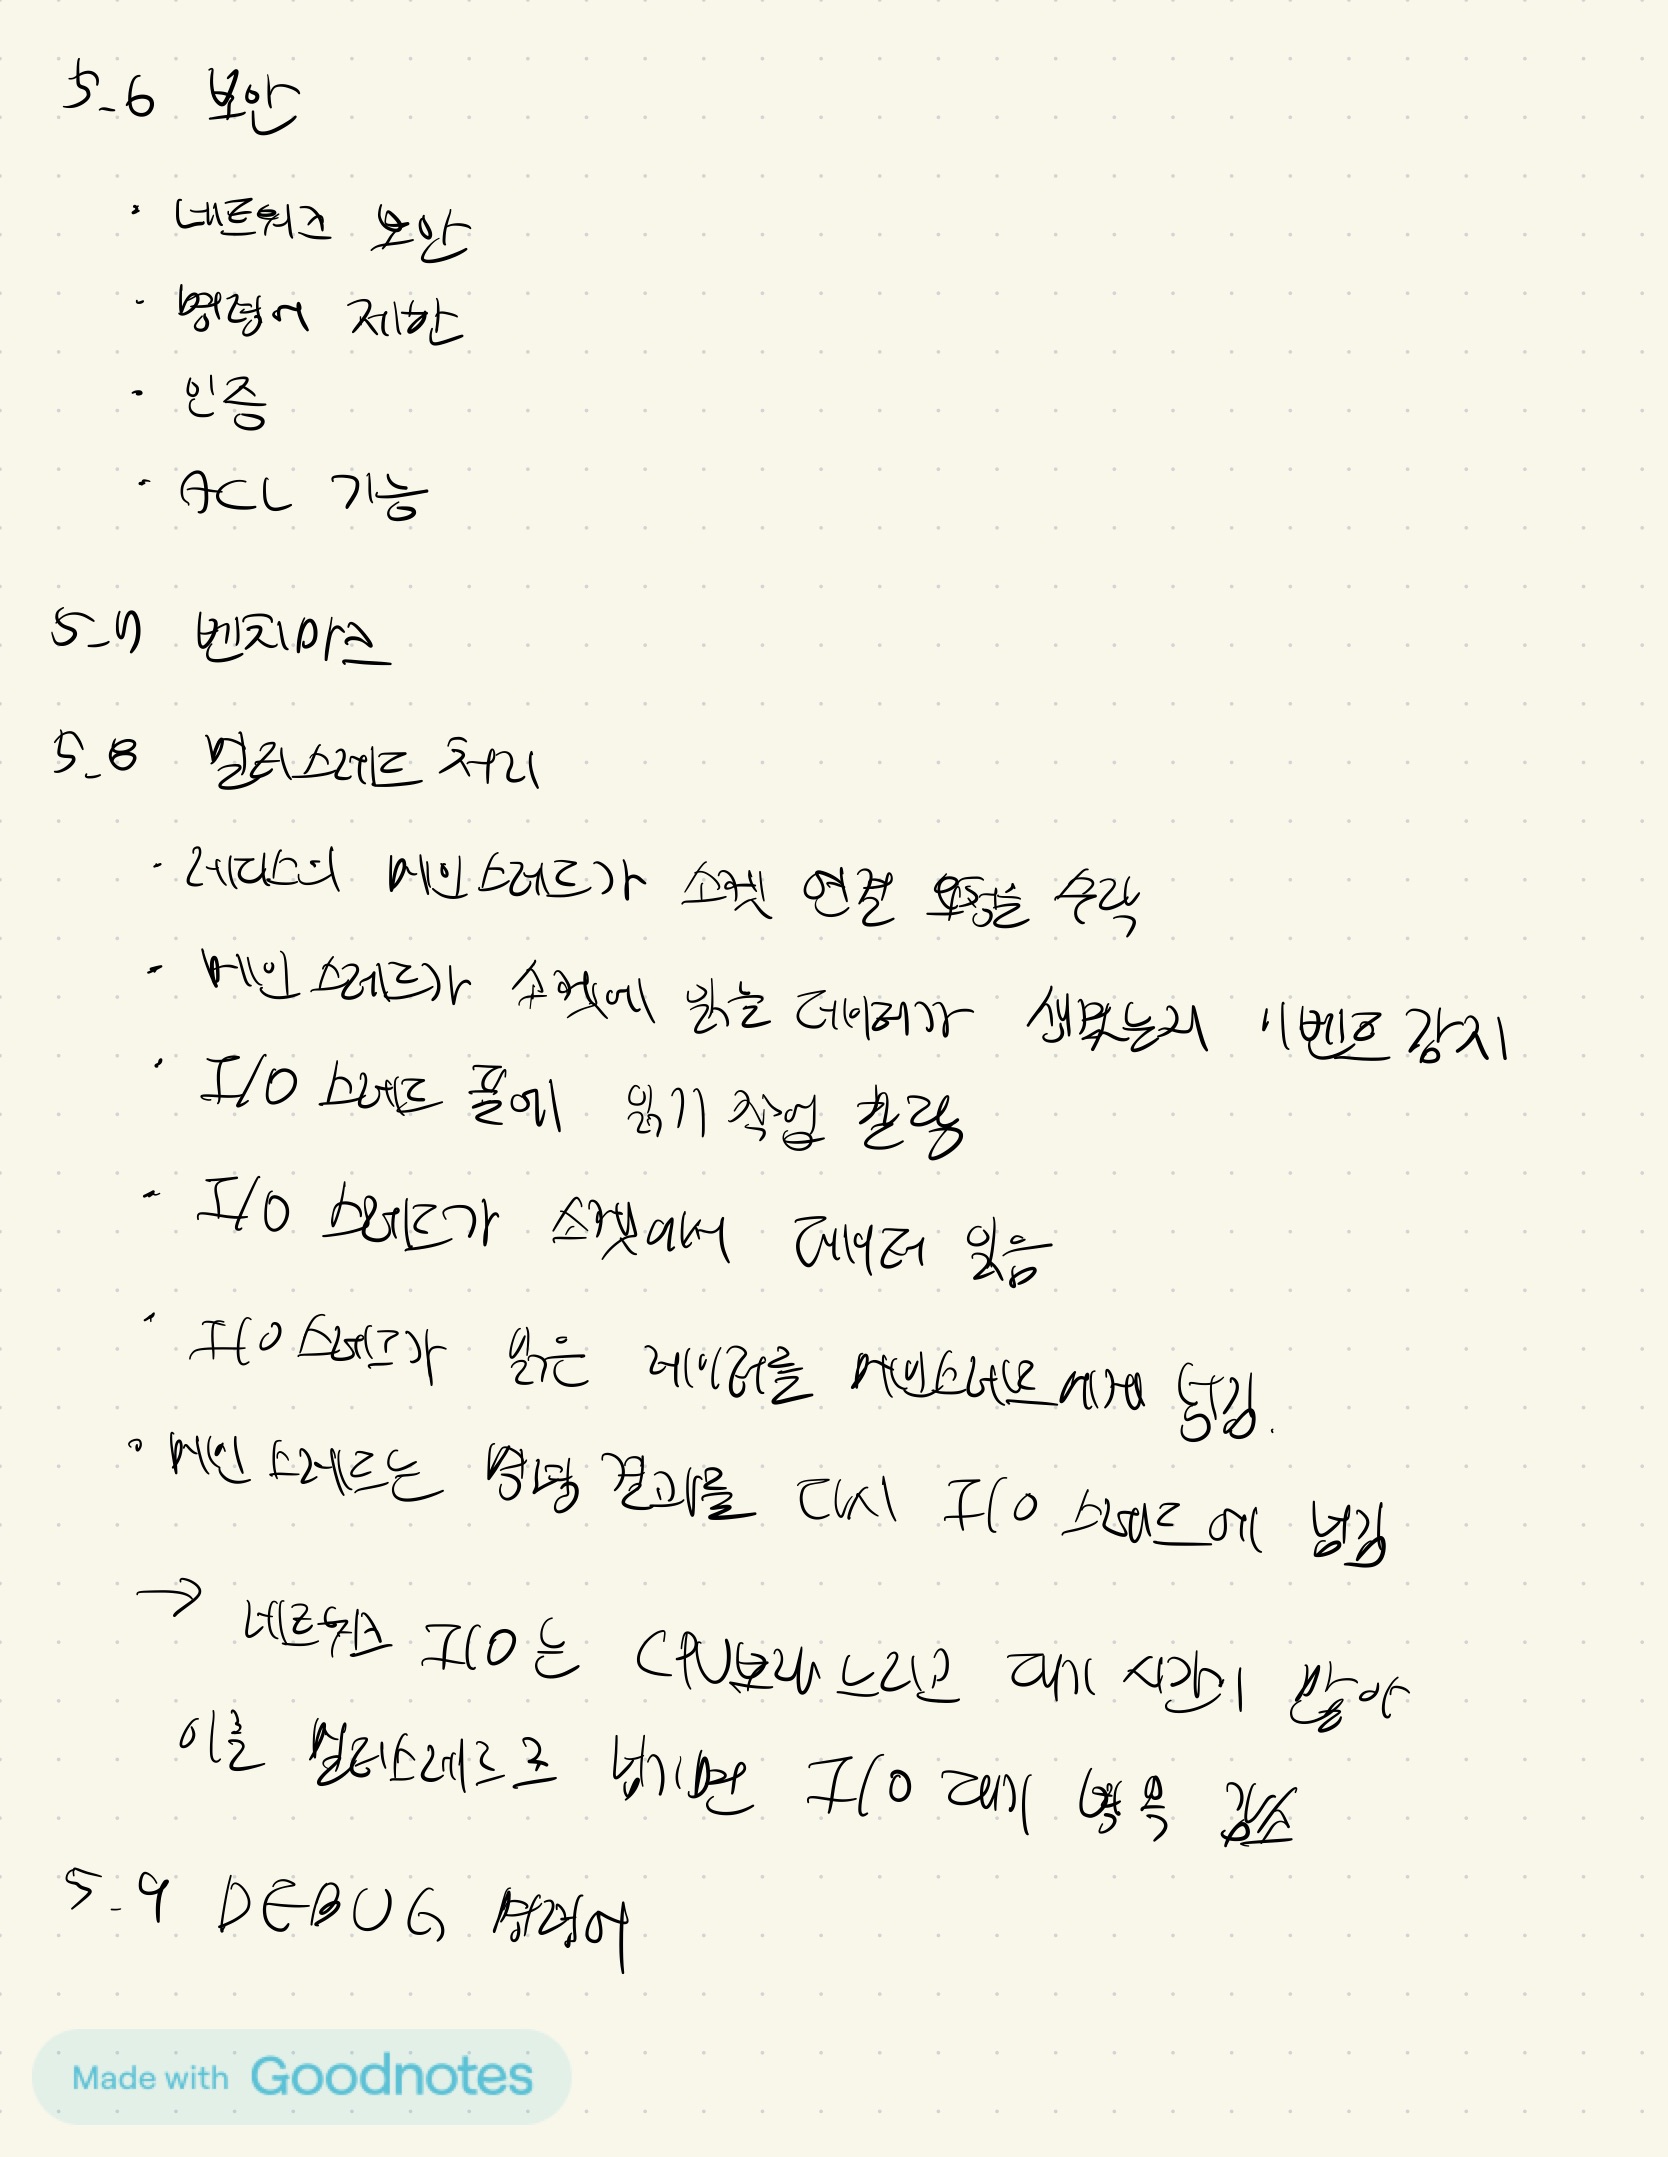 5_6 보안
· 네트워크 보안
· 명령어 제한
· 인증
· ACL 기능
5_7 벤치마크
5_8 멀티스레드 처리
· 레디스의 메인스레드가 소켓 연결 요청을 수락
· 메인 스레드가 소켓에 읽을 데이터가 생겼는지 이벤트 감지
· I/O 스레드 풀에 읽기 작업 할당
· I/O 스레드가 소켓에서 데이터 읽음
· I/O 스레드가 읽은 데이터를 메인스레드에게 넘김.
· 메인 스레드는 명령 결과를 다시 I/O 스레드에 넘김
→ 네트워크 I/O는 CPU보다 느리고 대기 시간이 많아
이를 멀티스레드로 넘기면 I/O 대기 병목 감소
5_9 DEBUG 명령어
Made with Goodnotes